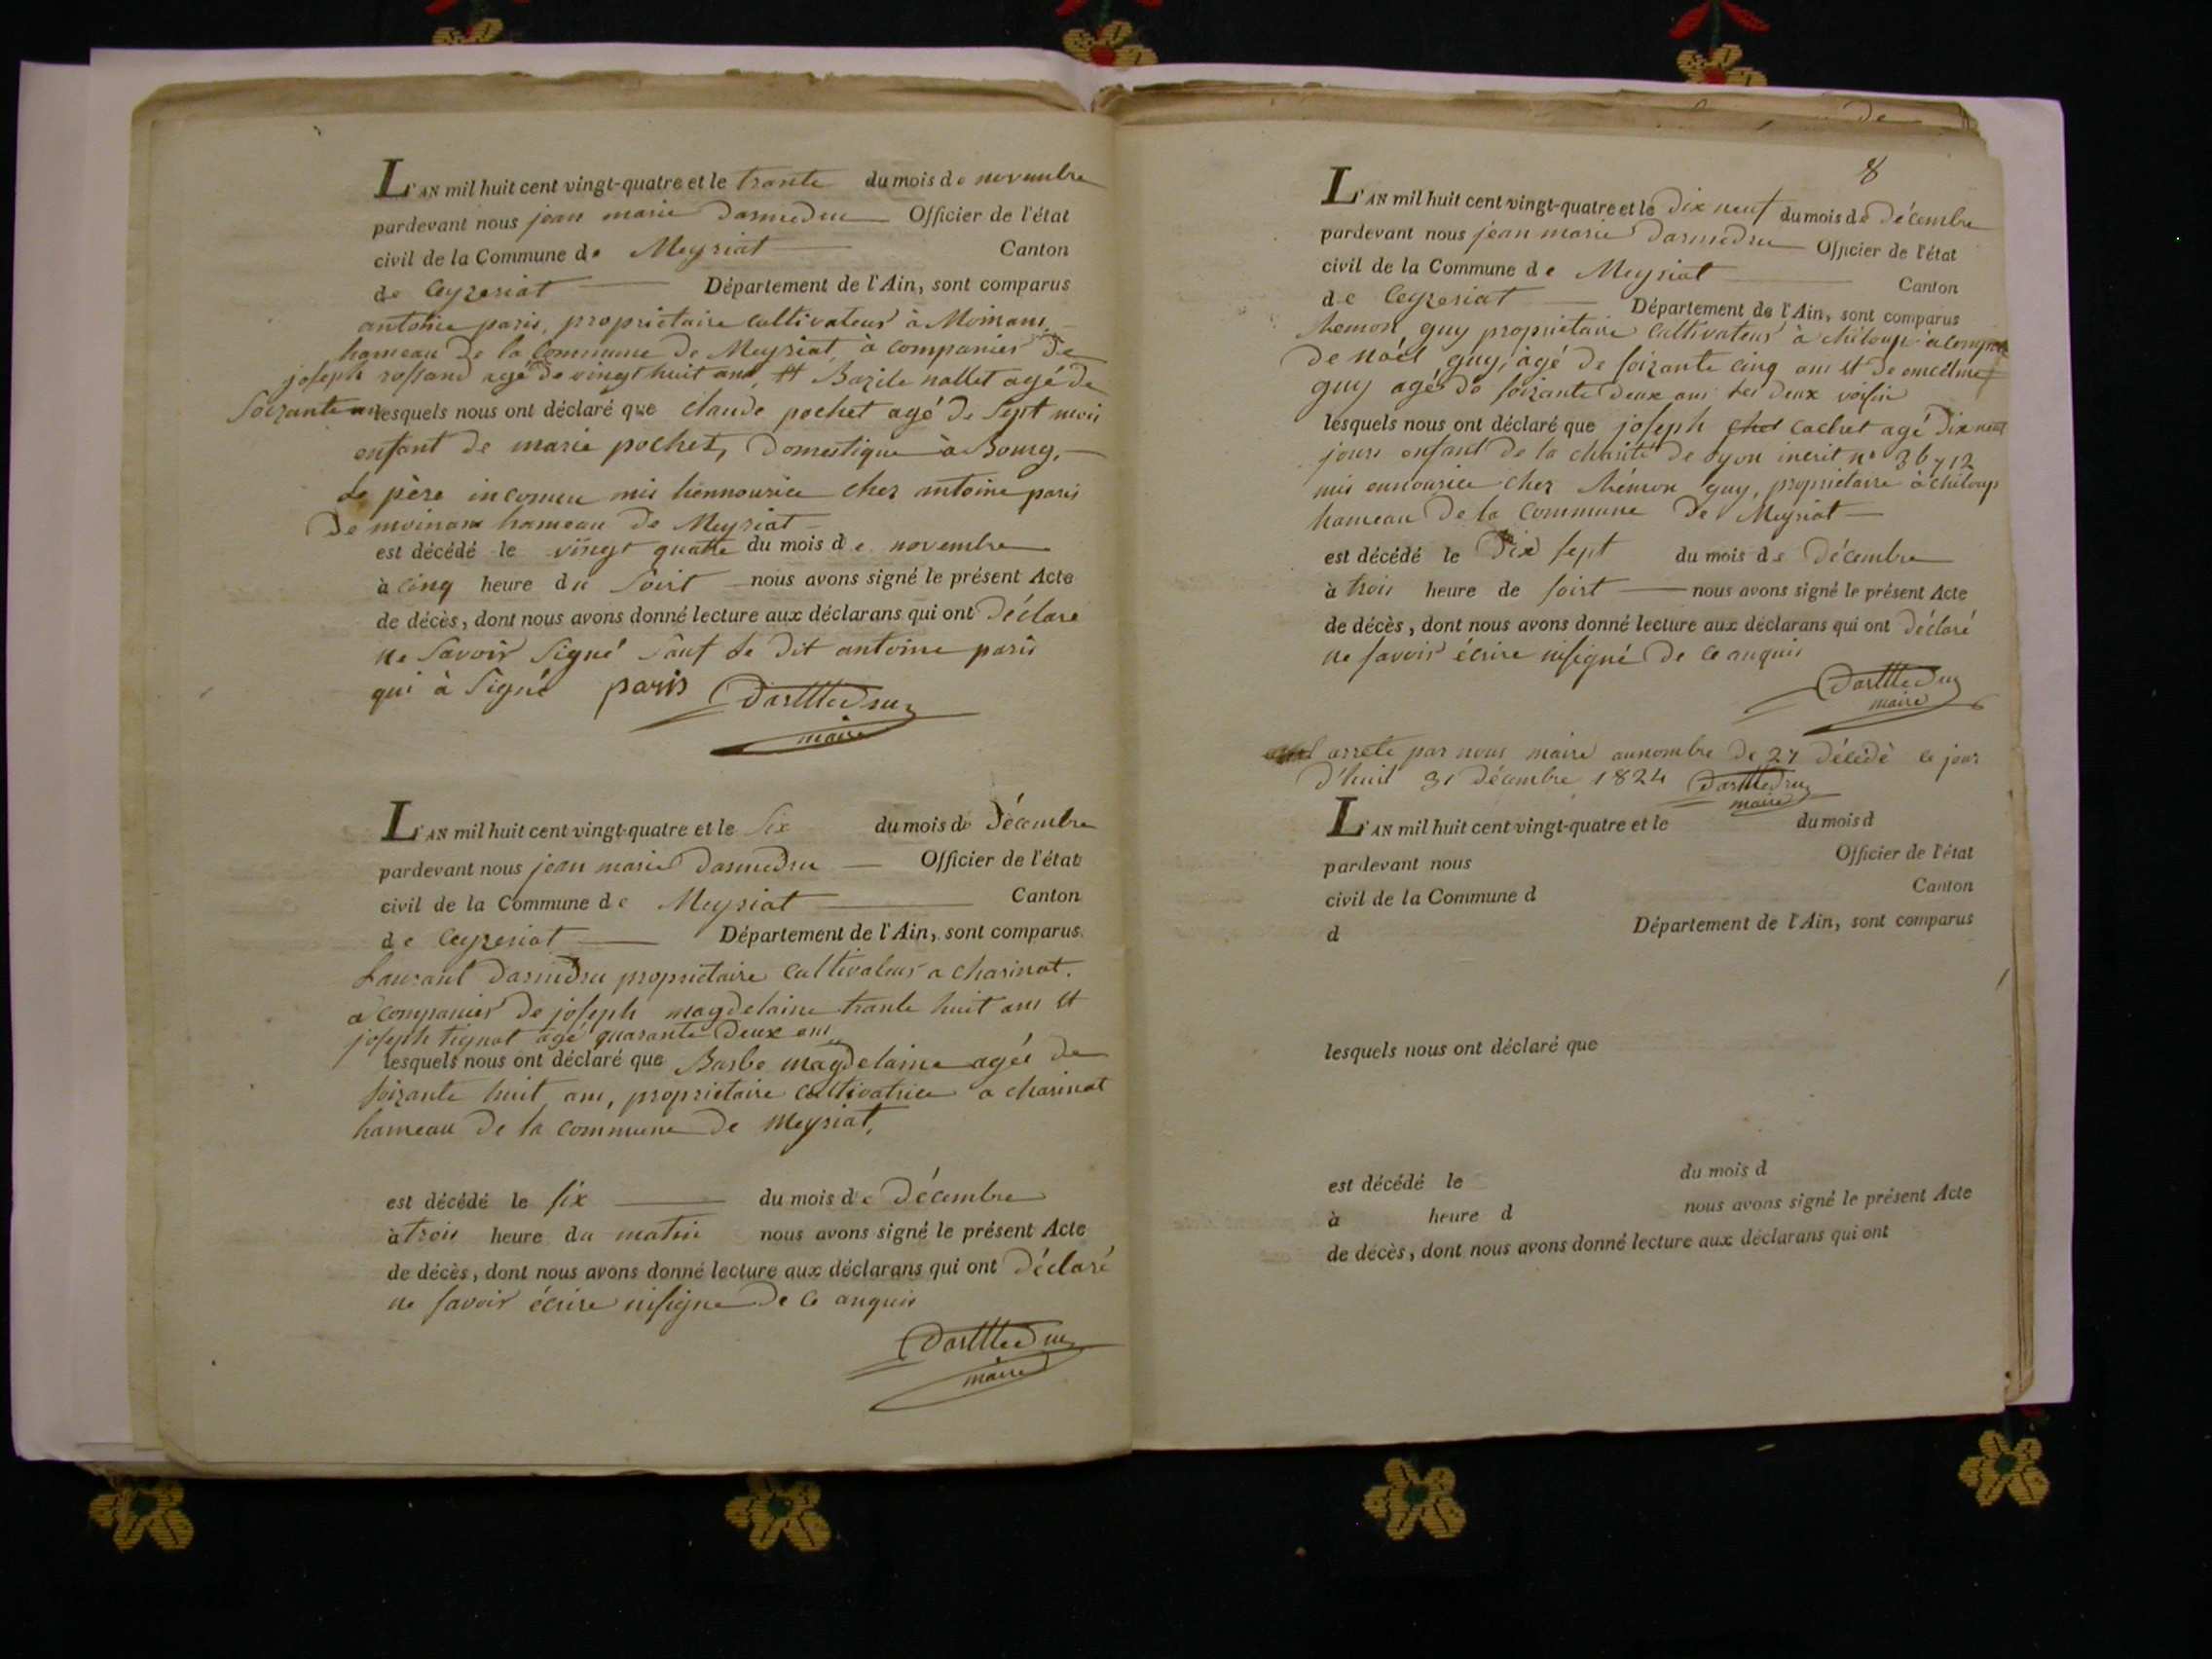 L'AN mil huit cent vingt-quatre et le trante du mois de novembre
pardevant nous jean marie darmedru Officier de l'état
civil de la Commune de Meyriat Canton
de Ceyzeriat Département de l'Ain, sont comparus
antoine paris, propriétaire cultivateur à Moinans
hameau de la Commune de Meyriat, à companier de
joseph rossand agé de vingt huit ans, et Bazile nallet agé de
soizante ans lesquels nous ont déclaré que claude pochet agé de sept mois
enfant de marie pochet, domestique à Bourg,
le père inconeu mis hennourice chez antoine paris
de moinans hameau de Meyriat
est décédé le vingt quatre du mois de novembre
à cinq heure du soirt nous avons signé le présent Acte
de décès, dont nous avons donné lecture aux déclarans qui ont déclaré
ne savoir signé sauf le dit antoine paris
qui à signé paris Darmedru
maire
L'AN mil huit cent vingt-quatre et le six du mois de décembre
pardevant nous jean marie darmedru Officier de l'état
civil de la Commune de Meyriat Canton
de Ceyzeriat Département de l'Ain, sont comparus
Laurant darmedru propriétaire cultivateur a charinat.
a companier de joseph magdelaine trante huit ans et
joseph tignat agé quarante deux ans
lesquels nous ont déclaré que Barbe magdelaine agée de
soizante huit ans, propriétaire cultivatrice a charinat
hameau de la commune de Meyriat,
est décédé le six du mois de décembre
à trois heure du matin nous avons signé le présent Acte
de décès, dont nous avons donné lecture aux déclarans qui ont déclaré
ne savoir écrire nisigne de ce anquis
Darmedru
maire
8
L'AN mil huit cent vingt-quatre et le dix neuf du mois de décembre
pardevant nous jean marie darmedru Officier de l'état
civil de la Commune de Meyriat Canton
de Ceyzeriat Département de l'Ain, sont comparus
hemon guy propriétaire cultivateur à chiloup
de noél guy, agé de soizante cinq ans et de
guy agé de soizante deux ans les deux voisin
lesquels nous ont déclaré que joseph cachet agé dix neuf
jours enfant de la charité de Lyon inscrit n° 36712
mis ennourice chez hémon guy, propriétaire à chiloup
hameau de la Commune de Meyriat
est décédé le dix sept du mois de décembre
à trois heure de soirt nous avons signé le présent Acte
de décès, dont nous avons donné lecture aux déclarans qui ont déclaré
ne savoir écrire nisigné de ce anquis
Darmedru
maire
arreté par nous maire aunombre de 27 décédé ce jour
d'huit 31 décembre 1824 Darmedru
maire
L'AN mil huit cent vingt-quatre et le du mois d
pardevant nous Officier de l'état
civil de la Commune d Canton
d Département de l'Ain, sont comparus
lesquels nous ont déclaré que
est décédé le du mois d
à heure d nous avons signé le présent Acte
de décès, dont nous avons donné lecture aux déclarans qui ont